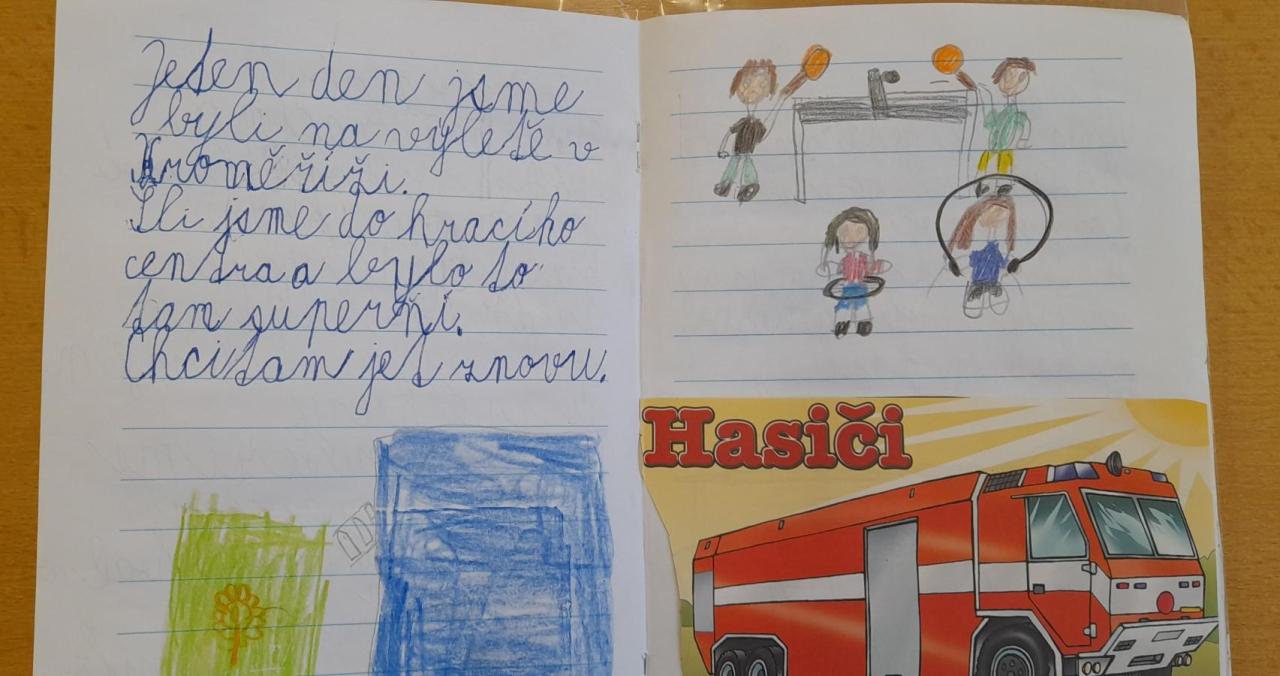 Jeden den jsme
byli na výletě v
Kroměříži.
Šli jsme do hracího
centra a bylo to
tam superní.
Chci tam jet znovu.
Hasiči